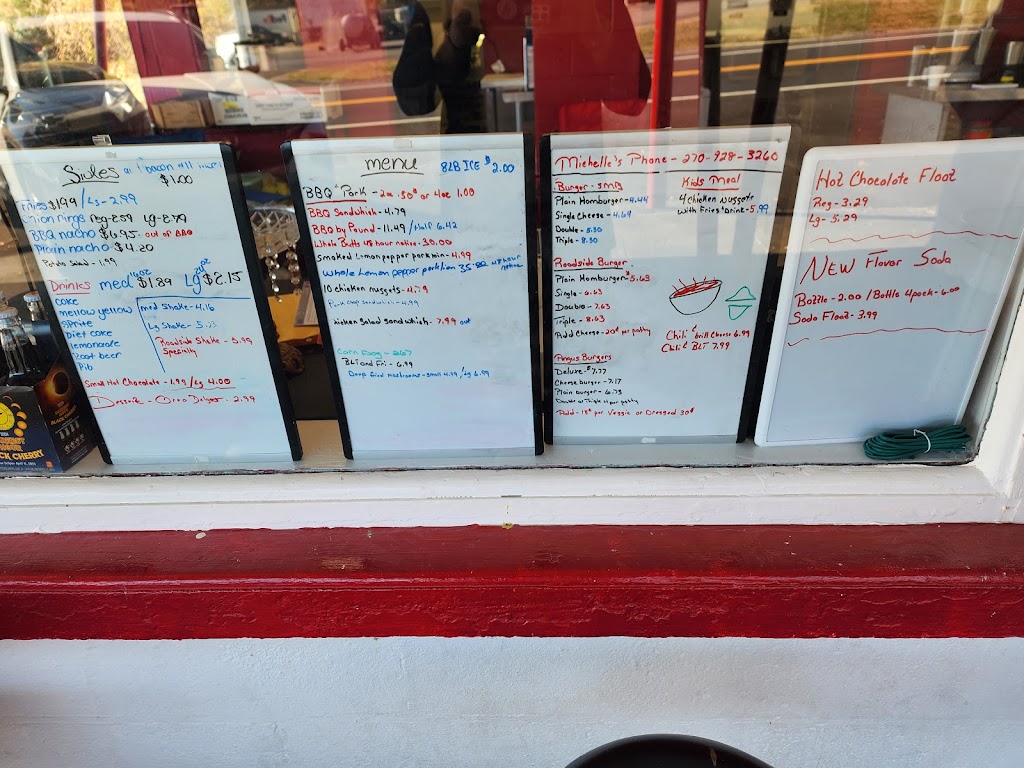 Sides
$1.00
Fries $1.99 / Lg - 2.99
Onion rings Reg - 2.59 Lg - 2.79
BBQ nacho $6.95 out of BBQ
Plain nacho $4.20
Potato Salad - 1.99
Drinks med $1.89 Lg $2.15
Coke
mellow yellow
Sprite
Diet coke
lemonade
Root beer
Pib
med Shake - 4.16
Lg Shake -
Roadside Shake - 5.99
Specialty
Small Hot Chocolate - 1.99 / Lg 4.00
Oreo - 2.99
BLACK CHERRY
menu 8LB ICE $2.00
BBQ Pork - 2oz .50¢ or 4oz 1.00
BBQ Sandwhich - 4.79
BBQ by Pound - 11.49 / Half 6.42
Whole Butts 48 hour notice - 30.00
Smoked Lemon pepper porkloin - 4.99
Whole Lemon pepper porkloin 35.00 48 hour notice
10 chicken nuggets - 4.79
Pork chop sandwhich - 4.99
chicken Salad Sandwhich - 7.99 out
Corn Dog - 2.67
BLT and Fri - 6.99
Deep fried mushrooms - small 4.99 / Lg 6.99
Michelle's Phone - 270-928-3260
Burger - SMR
Plain Hamburger - 4.44
Single Cheese - 4.64
Double - 5.30
Triple - 8.30
Kids Meal
4 chicken nuggets
with Fries & Drink - 5.99
Roadside Burger
Plain Hamburger - $5.63
Single - 6.63
Double - 7.63
Triple - 8.63
Add Cheese - 20¢ per patty
Chili & Grill Cheese 6.99
Chili & BLT 7.99
Angus Burgers
Deluxe - $7.77
Cheese burger - 7.17
Plain burger - 6.73
Double or Triple per patty
Add - 15¢ per Veggie or Dressed 30¢
Hot Chocolate Float
Reg - 3.29
Lg - 5.29
NEW Flavor Soda
Bottle - 2.00 / Bottle 4pack - 6.00
Soda Float - 3.99